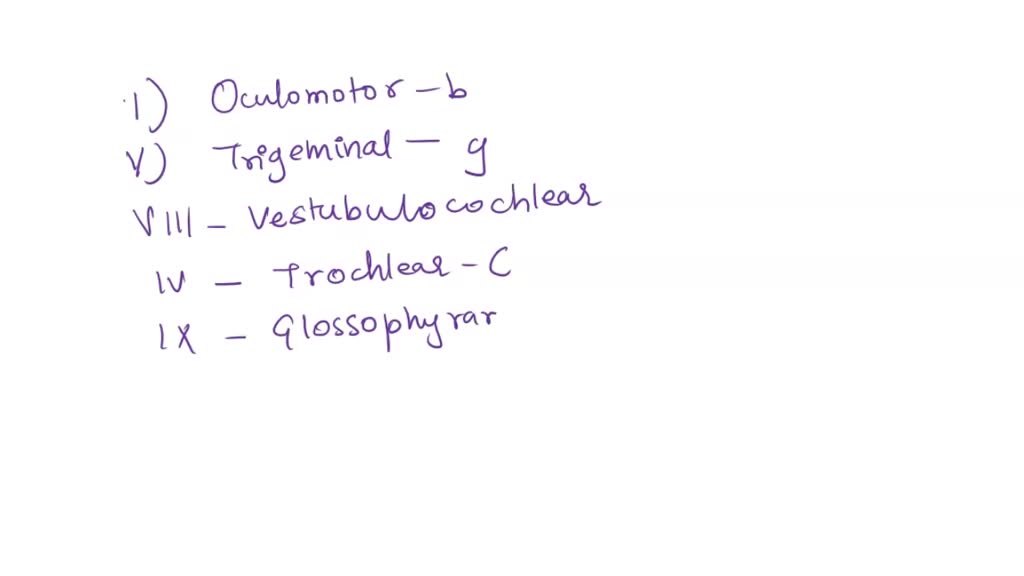 1) Oculomotor - b
V) Trigeminal - g
VIII - Vestubulocochlear
IV - Trochlear - C
IX - Glossophyrar